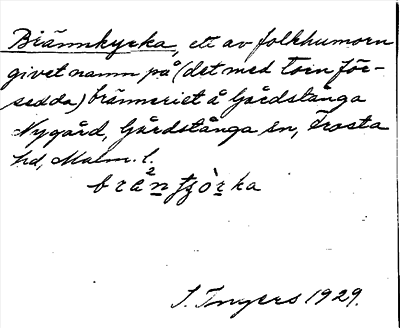 Brännkyrka, ett av folkhumorn
givet namn på (det med torn för-
sedda) bränneriet å Gårdstånga
Nygård, Gårdstånga sn, Frosta
hd, Malm. l.
brä²n tjòrka
S. Ingers 1929.